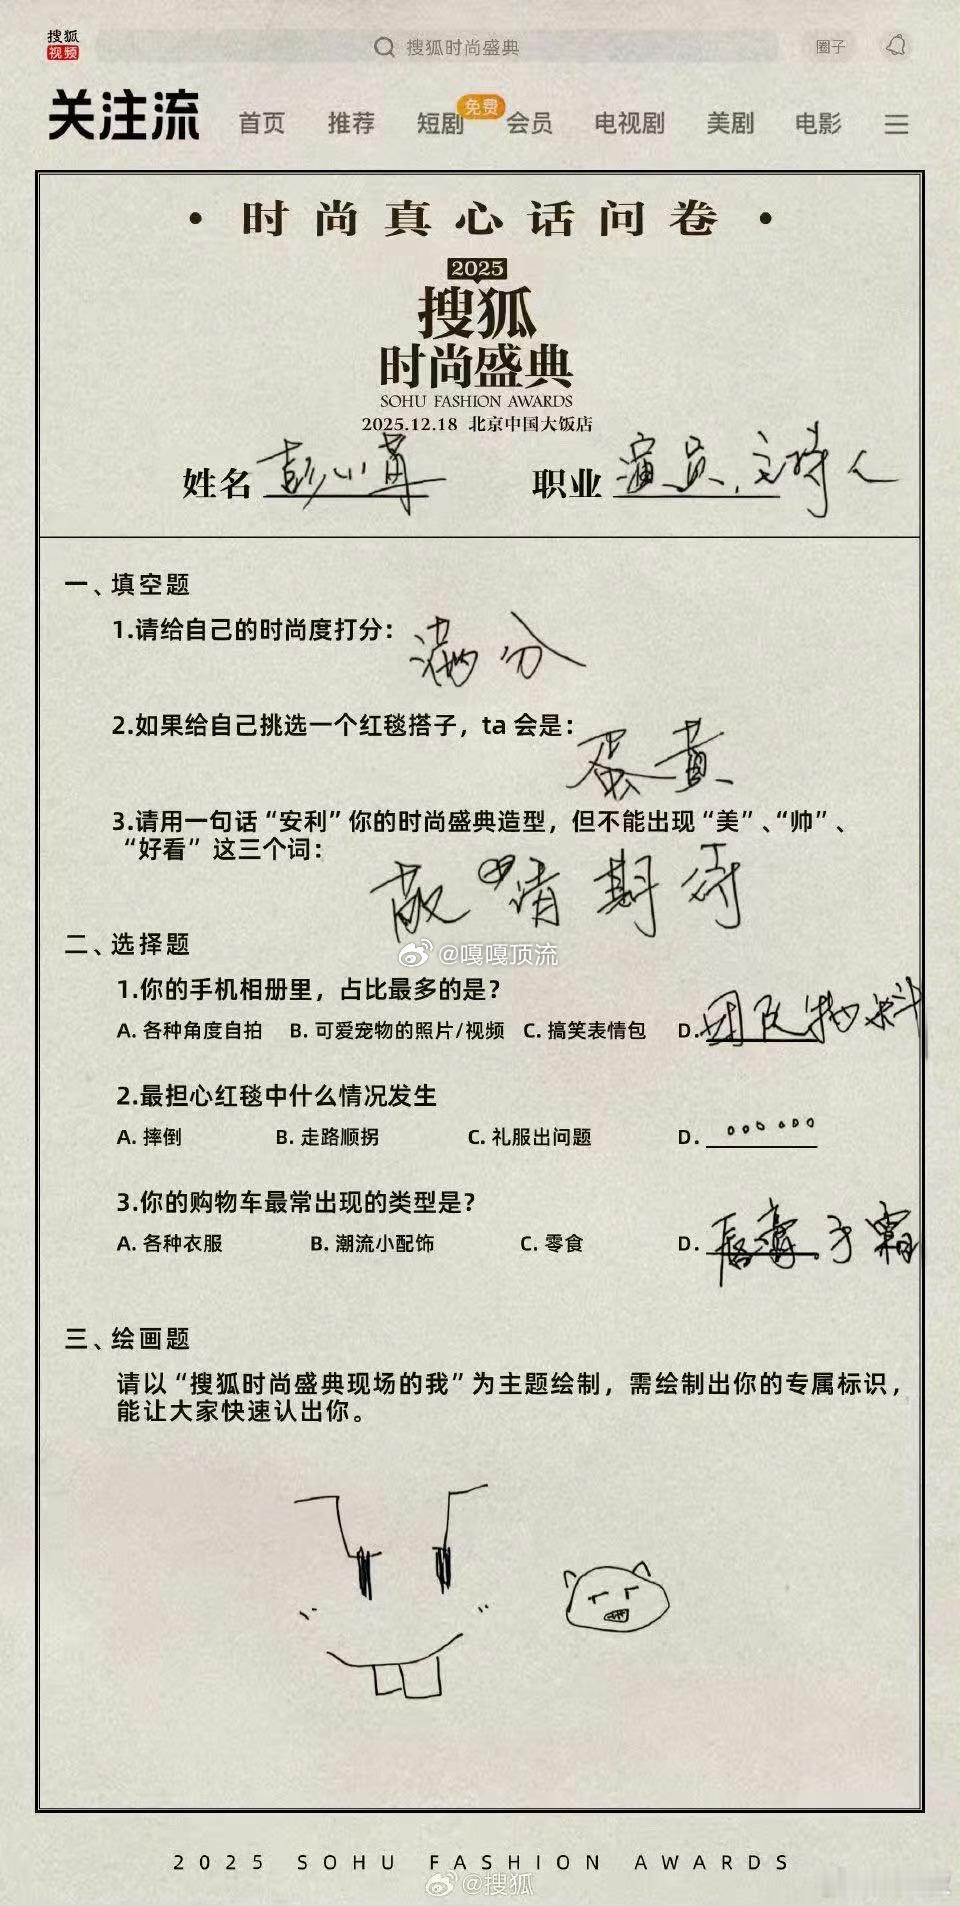 搜狐
视频
搜狐时尚盛典
圈子
关注流 首页 推荐 短剧 免费 会员 电视剧 美剧 电影
· 时尚真心话问卷 ·
2025
搜狐
时尚盛典
SOHU FASHION AWARDS
2025.12.18 北京中国大饭店
姓名 彭小苒 职业 演员、主持人
一、填空题
1.请给自己的时尚度打分：满分
2.如果给自己挑选一个红毯搭子，ta 会是：蛋黄
3.请用一句话“安利”你的时尚盛典造型，但不能出现“美”、“帅”、
“好看” 这三个词：
敬请期待
二、选择题
@嘎嘎顶流
1.你的手机相册里，占比最多的是？
A. 各种角度自拍 B. 可爱宠物的照片/视频 C. 搞笑表情包 D. 团队物料
2.最担心红毯中什么情况发生
A. 摔倒 B. 走路顺拐 C. 礼服出问题 D. 。。。。。。
3.你的购物车最常出现的类型是？
A. 各种衣服 B. 潮流小配饰 C. 零食 D. 唇膏。手霜
三、绘画题
请以“搜狐时尚盛典现场的我”为主题绘制，需绘制出你的专属标识，
能让大家快速认出你。
2025 SOHU FASHION AWARDS
@搜狐